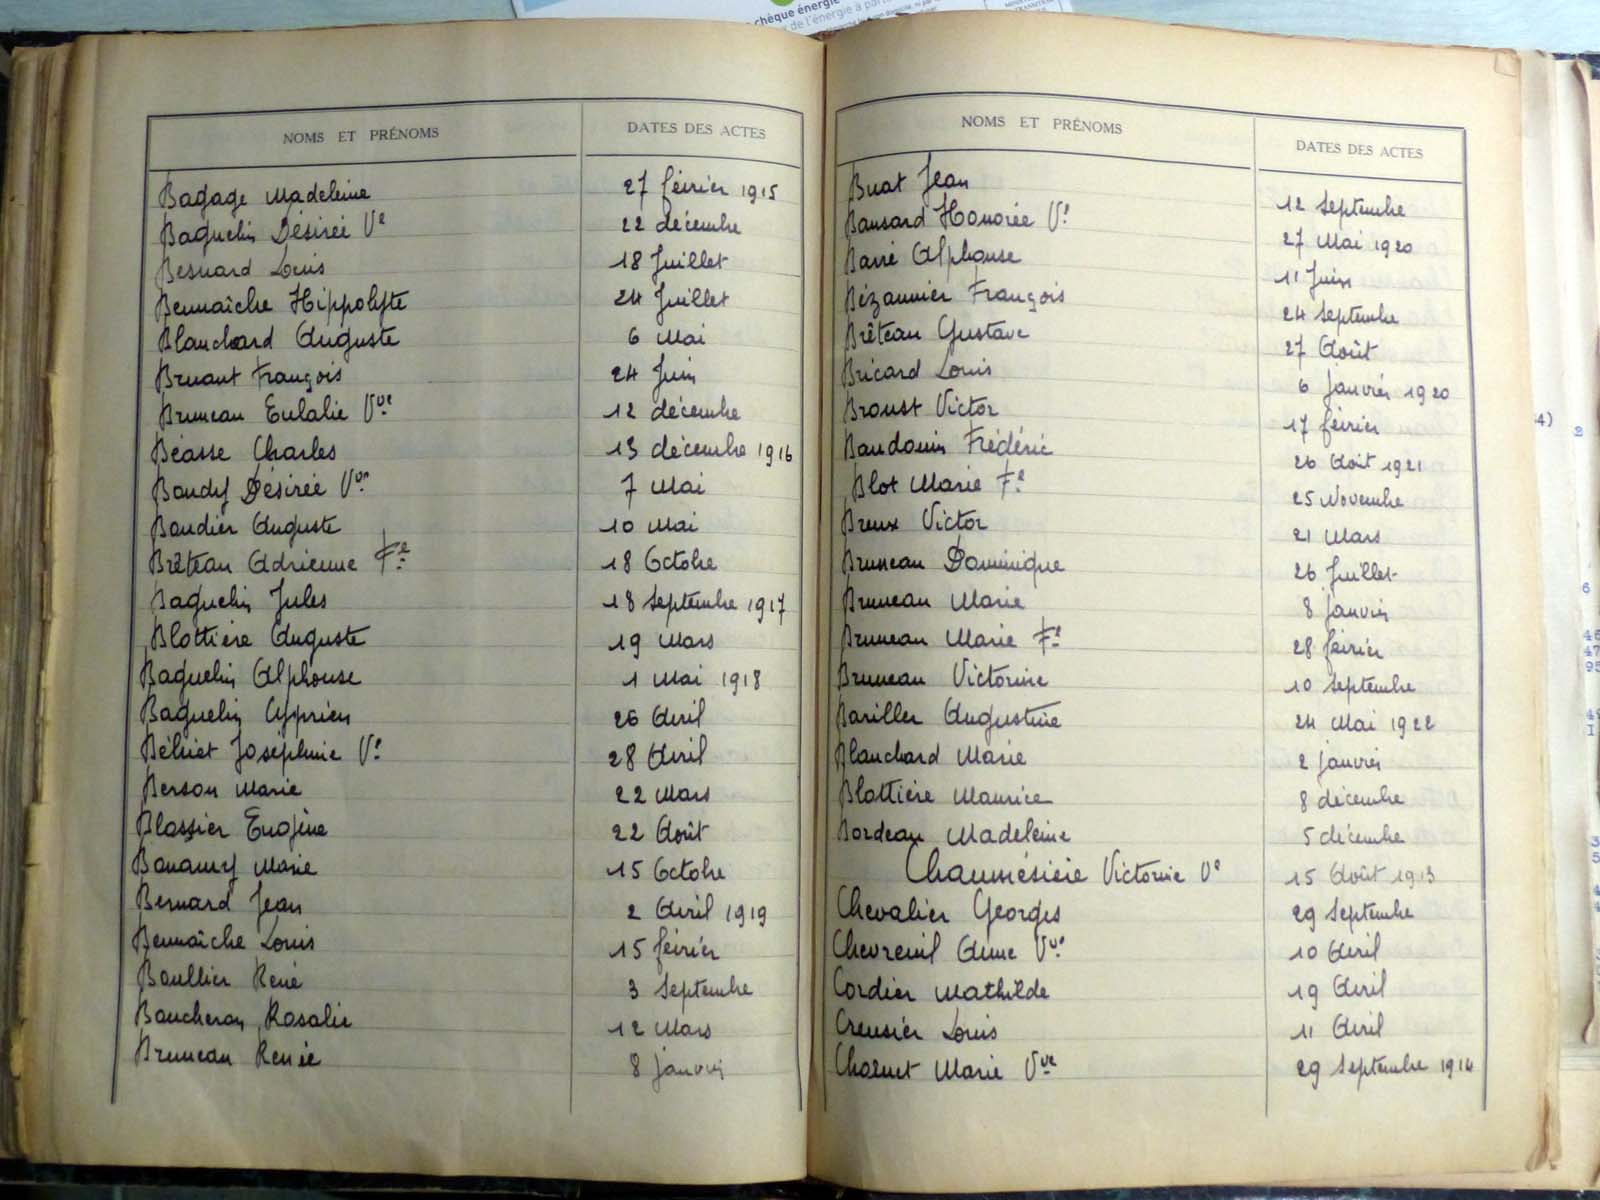 chèque énergie
de l'énergie à part
NOMS ET PRÉNOMS DATES DES ACTES
Bagage Madeleine 27 février 1915
Baguelin Désirée Ve 22 décembre
Besnard Louis 18 Juillet
Bennaîche Hippolyte 24 Juillet
Blanchard Auguste 6 Mai
Bruant François 24 Juin
Bruneau Eulalie Vve 12 décembre
Béasse Charles 13 décembre 1916
Baudy Désirée Vve 7 Mai
Baudier Auguste 10 Mai
Brêteau Adrienne Fe 18 Octobre
Baguelin Jules 18 Septembre 1917
Blottière Auguste 19 Mars
Baguelin Alphonse 1 Mai 1918
Baguelin Cyprien 26 Avril
Joséphine Ve 28 Avril
Berson Marie 22 Mars
Blassier Eugène 22 Août
Marie 15 Octobre
Bernard Jean 2 Avril 1919
Bennaîche Louis 15 février
Boullier René 3 Septembre
Boucheron Rosalie 12 Mars
Bruneau Renée 8 janvier
NOMS ET PRÉNOMS DATES DES ACTES
Buat Jean 12 Septembre
Bansard Honorée Ve 27 Mai 1920
Barré Alphonse 11 Juin
Bézannier François 24 Septembre
Brêteau Gustave 27 Août
Bricard Louis 6 janvier 1920
Broust Victor 17 février
Baudouin Frédéric 26 Août 1921
Blot Marie Fe 25 Novembre
Breux Victor 21 Mars
Bruneau Dominique 26 Juillet
Bruneau Marie 8 janvier
Bruneau Marie Fe 28 février
Bruneau Victorine 10 Septembre
Bariller Augustine 24 Mai 1922
Blanchard Marie 2 janvier
Blottière Maurice 8 décembre
Bordeau Madeleine 5 décembre
Chaumésière Victorine Ve 15 Août 1913
Chevalier Georges 29 Septembre
Chevreuil Anne Vve 10 Avril
Cordier Mathilde 19 Avril
Creusier Louis 11 Avril
Marie Vve 29 Septembre 1914